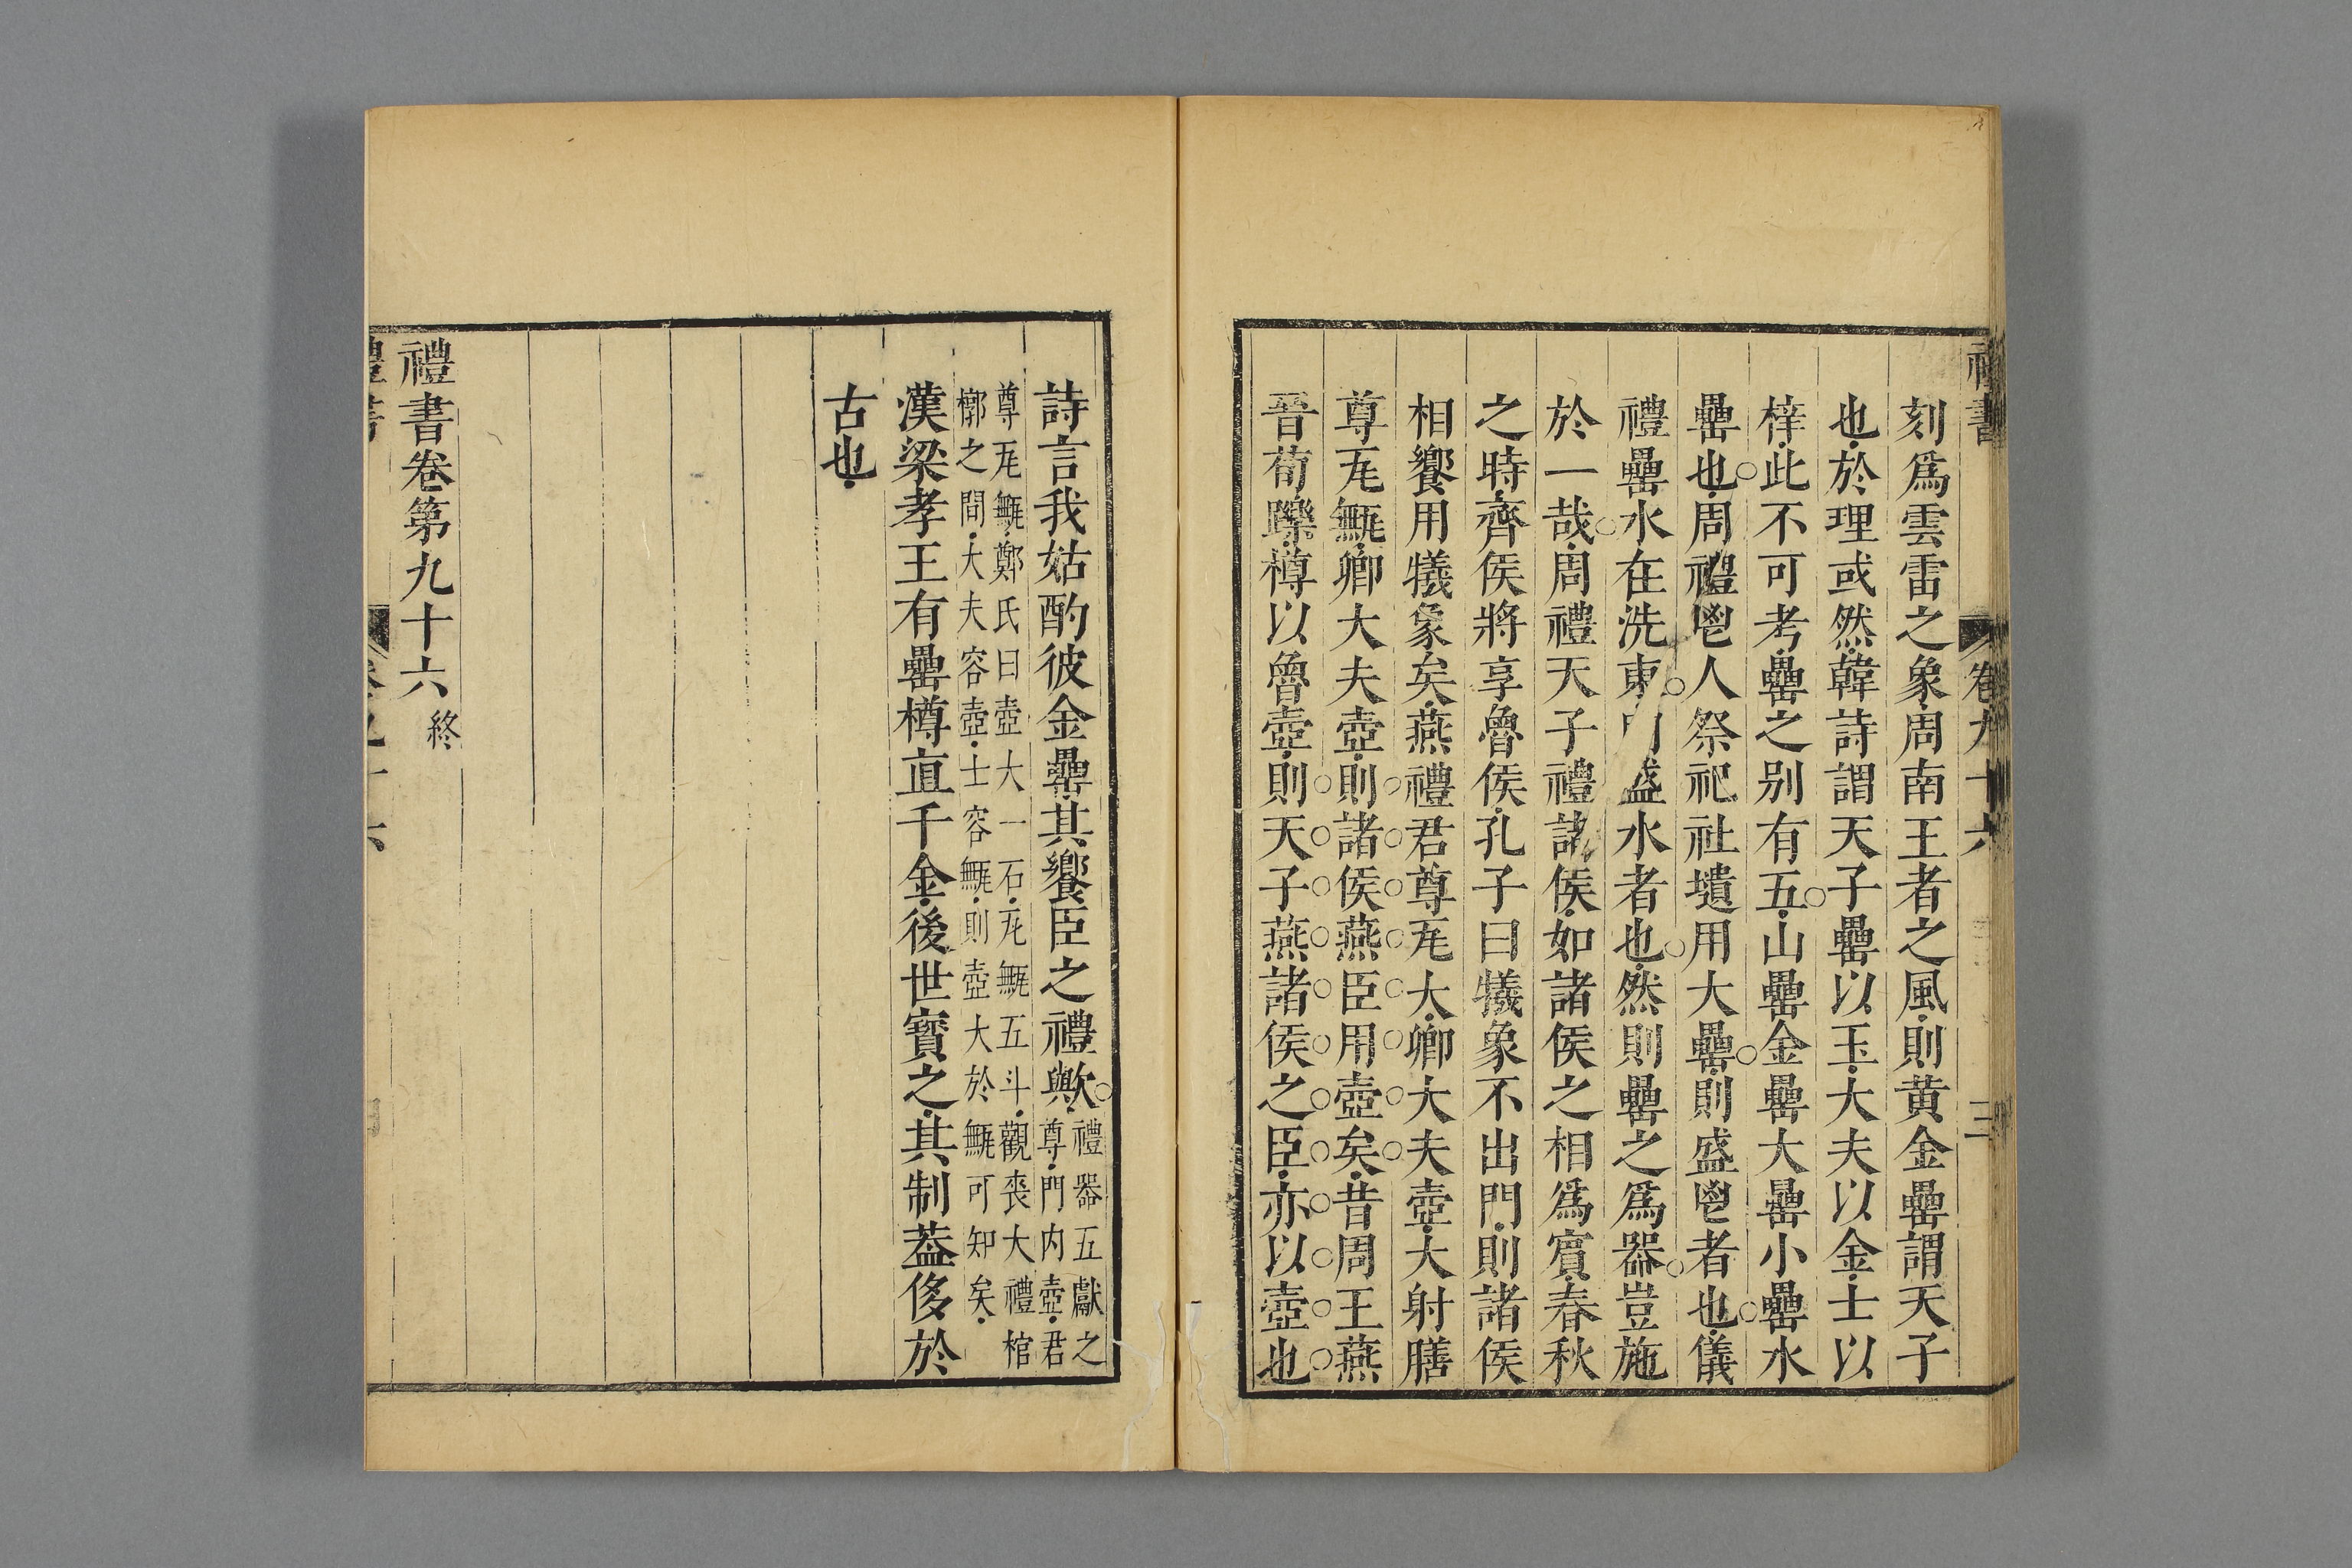 禮書 卷九十六 三
刻爲雲雷之象周南王者之風則黄金罍謂天子
也於理或然韓詩謂天子罍以玉大夫以金士以
梓此不可考罍之别有五山罍金罍大罍小罍水
罍也周禮鬯人祭祀社壝用大罍則盛鬯者也儀
禮罍水在洗東 盛水者也然則罍之爲器豈施
於一哉周禮天子禮諸侯如諸侯之相爲賓春秋
之時齊侯將享魯侯孔子曰犧象不出門則諸侯
相饗用犧象矣燕禮君尊瓦大卿大夫壺大射膳
尊瓦甒卿大夫壺則諸侯燕臣用壺矣昔周王燕
晉荀躒樽以魯壺則天子燕諸侯之臣亦以壺也
詩言我姑酌彼金罍其饗臣之禮歟禮器五獻之
尊門内壺君
尊瓦甒鄭氏曰壺大一石瓦甒五斗觀喪大禮棺
槨之間大夫容壺士容甒則壺大於甒可知矣
漢梁孝王有罍樽直千金後世寳之其制葢侈於
古也
禮書卷第九十六終